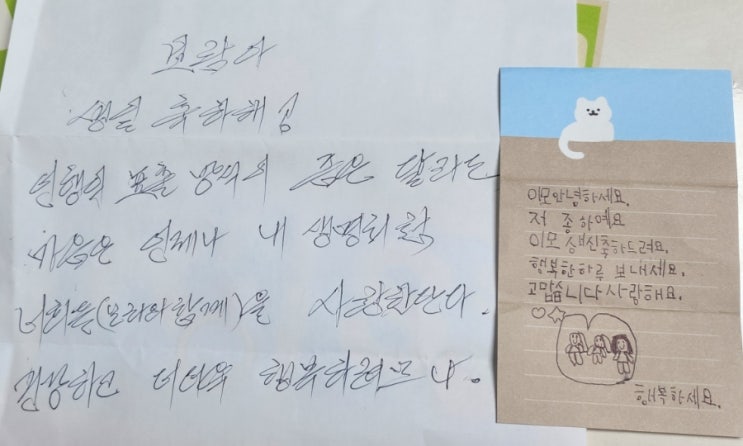 보람아
생일 축하해
표출 방식의 폭은 달라도
마음은 언제나 내 생명처럼
너희들(보라와함께)을 사랑한단다.
건강하고 더더욱 행복하려므나.
이모안녕하세요.
저 종하예요
이모 생신축하드려요.
행복한하루 보내세요.
고맙습니다사랑해요.
행복하세요.